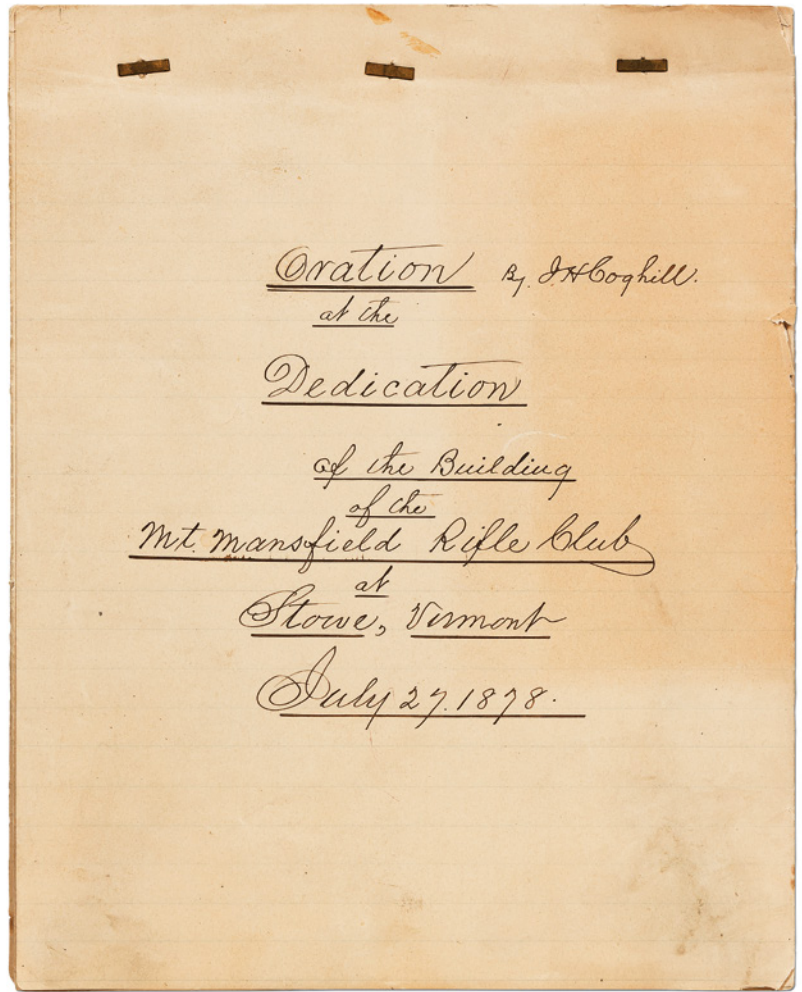 Oration By. J H Coghill.
at the
Dedication
of the Building
of the
Mt. Mansfield Rifle Club
at
Stowe, Vermont
July 27. 1878.